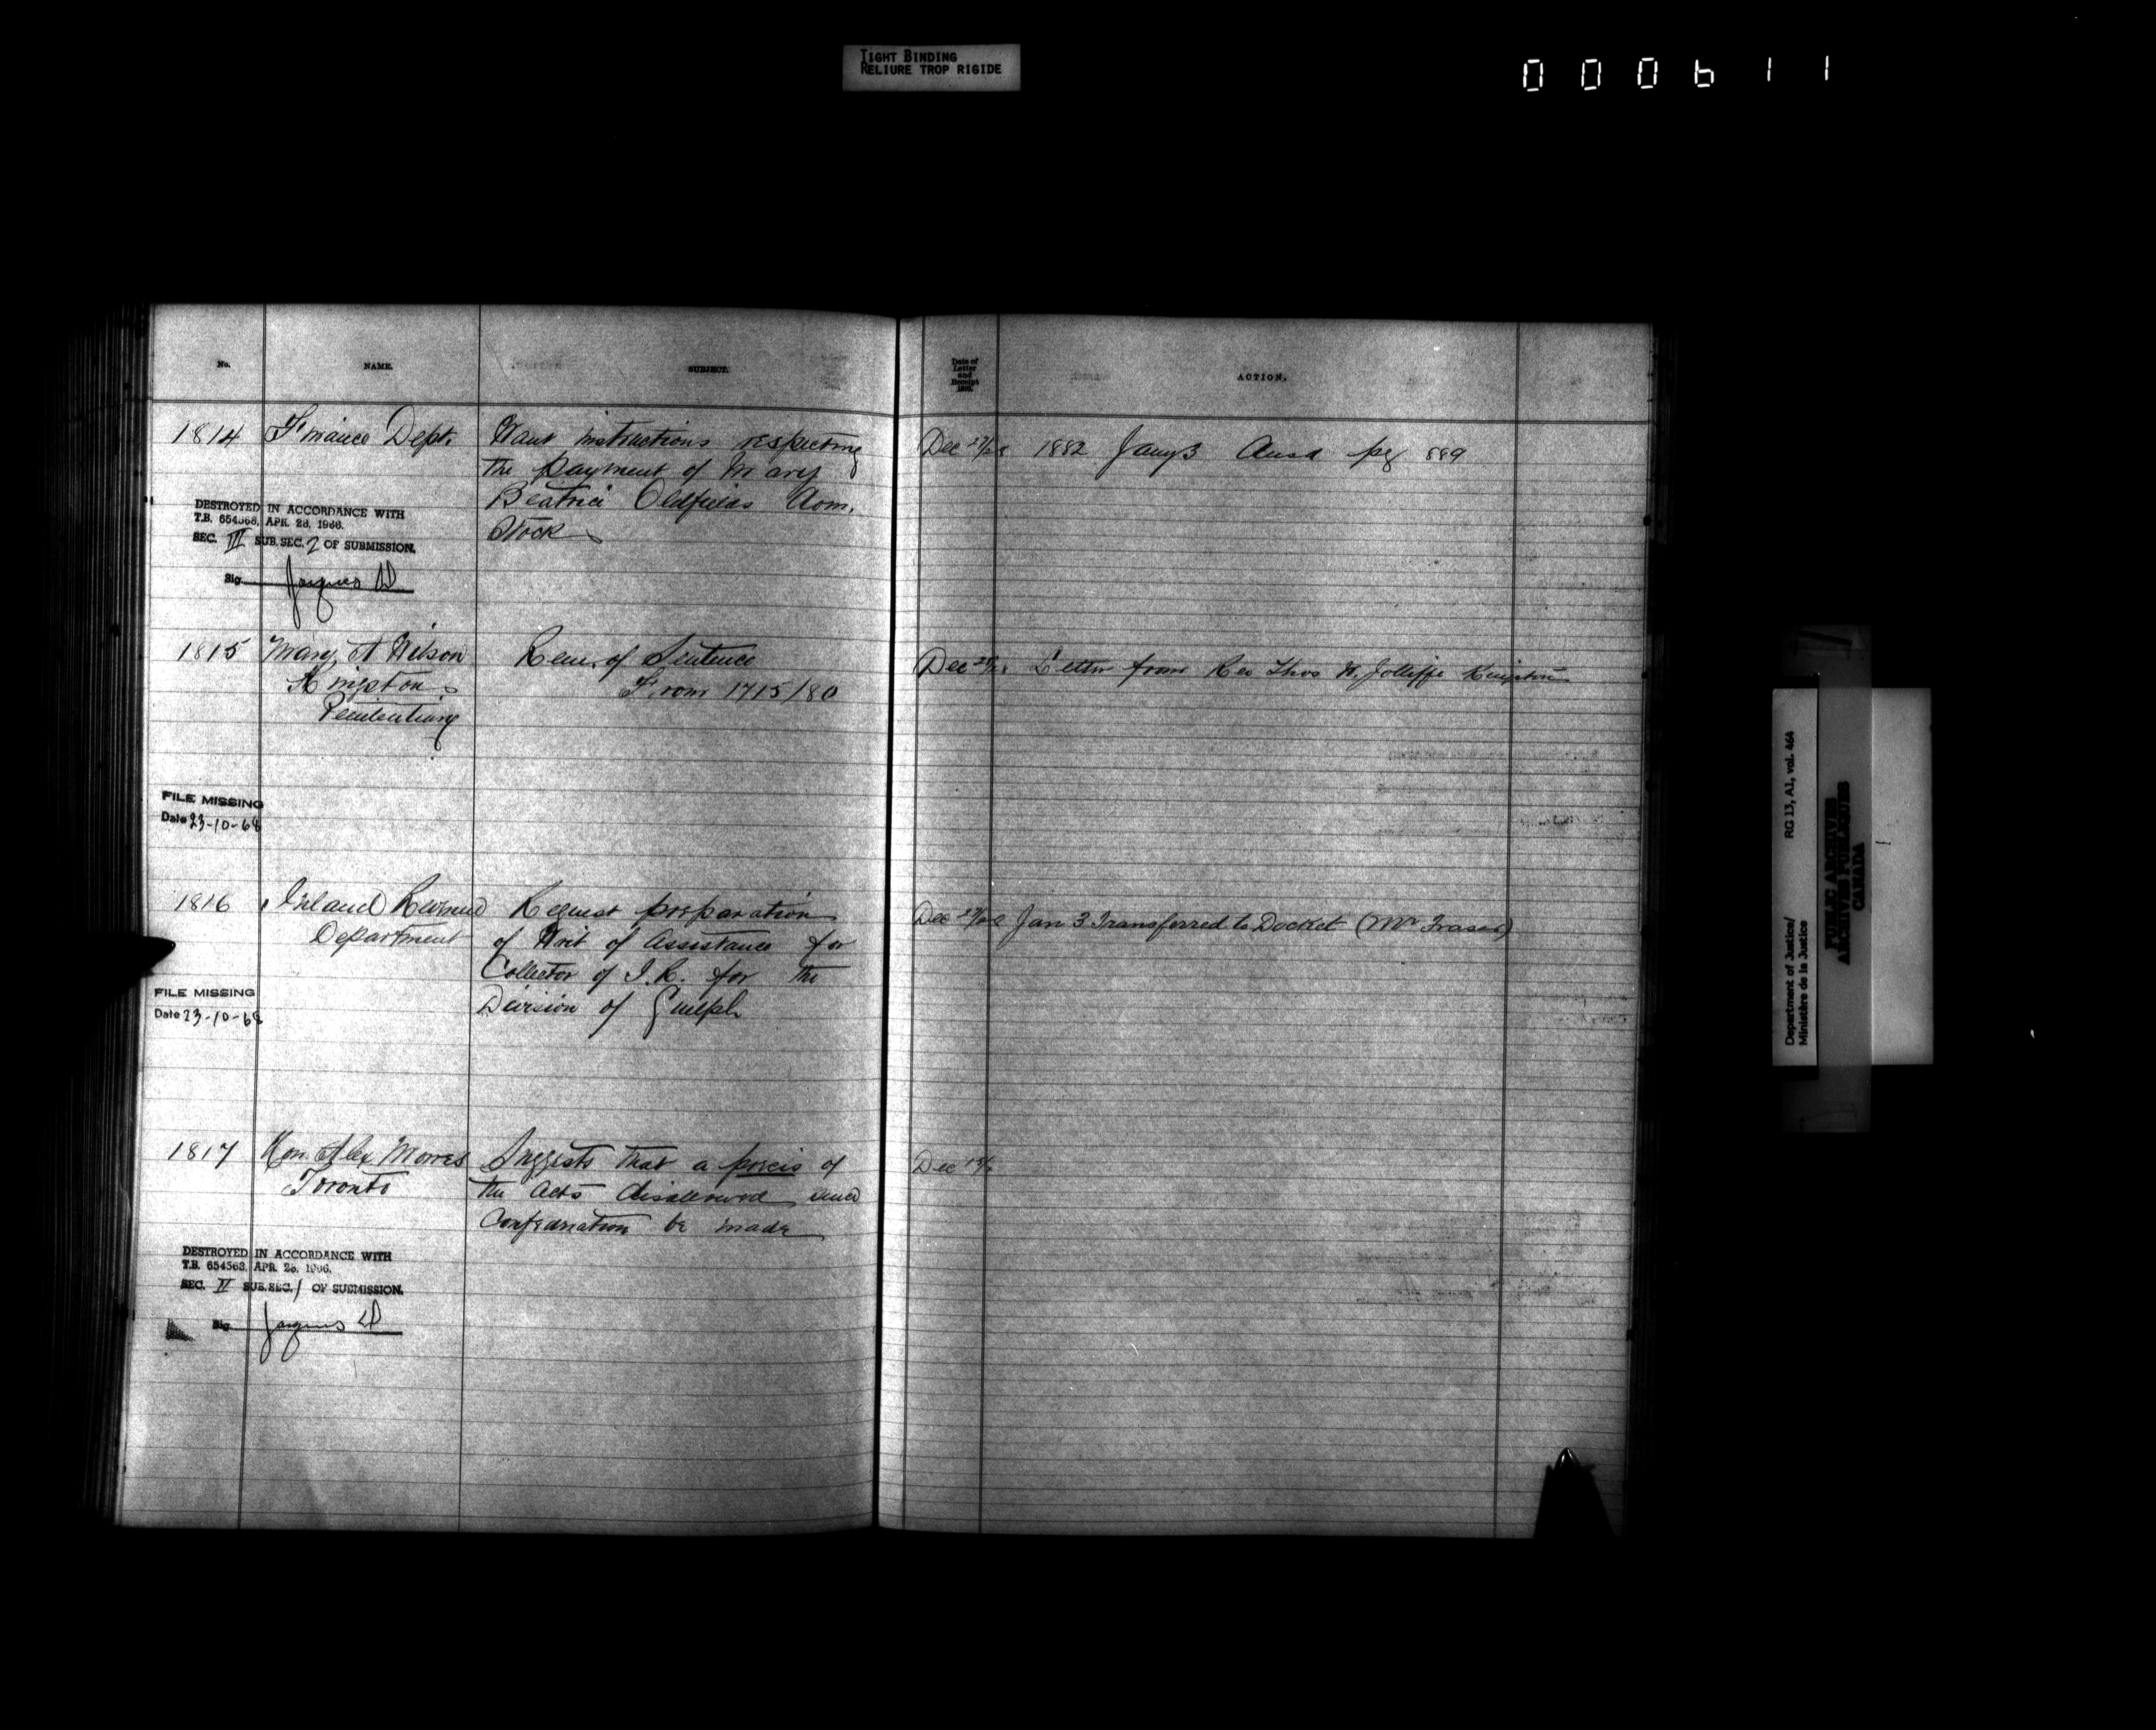 TIGHT BINDING
RELIURE TROP RIGIDE
000611
No.
NAME.
SUBJECT.
Date of
Letter
and
Receipt
ACTION.
1814 Finance Dept. Want instructions respecting
the payment of Mary
Beatrice Oldfields Dom.
Stock
Dec 27/28 1882 Jany 3 Ansd pg 889
DESTROYED IN ACCORDANCE WITH
T.B. 654563, APR. 28, 1966.
SEC. III SUB. SEC. 2 OF SUBMISSION.
Sig. Jacques
1815 Mary A Wilson Rem. of Sentence
Kingston From 1715/80
Penitentiary
Dec Letter from Rev Thos W. Jolliffe Kingston
FILE MISSING
Date 23-10-68
1816 Inland Revenue Request preparation
Department of Writ of Assistance for
Collector of I.R. for the
Division of Guelph
Dec Jan 3 Transferred to Docket (Mr Fraser)
FILE MISSING
Date 23-10-68
1817 Hon. Alex Morris Suggests that a precis of
Toronto the Acts disallowed since
Confederation be made
Dec
DESTROYED IN ACCORDANCE WITH
T.B. 654563, APR. 28, 1966.
SEC. II SUB. SEC. 1 OF SUBMISSION.
Sig. Jacques
Department of Justice/ RG 13, A1, vol. 464
Ministère de la Justice
PUBLIC ARCHIVES
ARCHIVES PUBLIQUES
CANADA